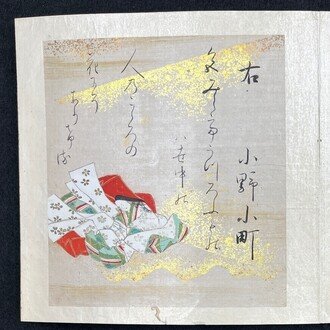 右
小野小町
色みえてうつろふもの
ハ世中の
人のこゝろの
花にそ
ありける